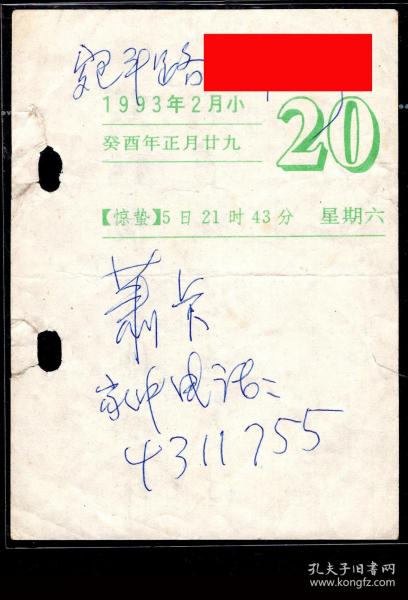 宛平路
1993年2月小
20
癸酉年正月廿九
【惊蛰】5日21时43分 星期六
萧卡
家中电话：
4311755
孔夫子旧书网
www.kongfz.com